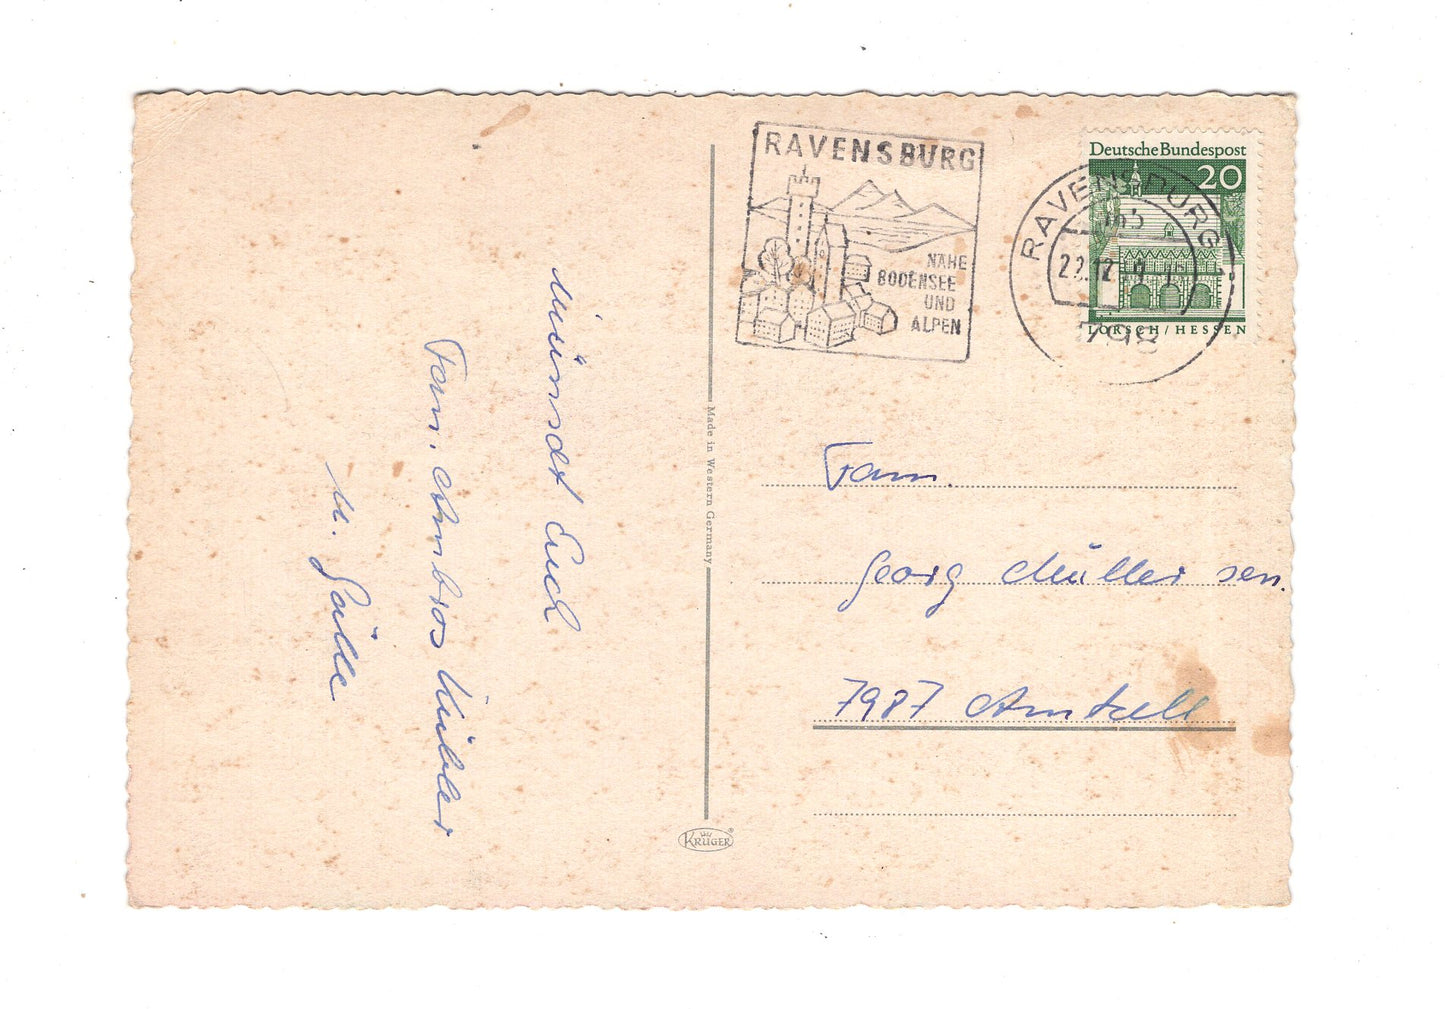 wünscht Euch
Fam. Ambros Kübler
u. Gälle
Made in Western Germany
KRÜGER
RAVENSBURG
NÄHE
BODENSEE
UND
ALPEN
RAVENSBURG 1
22.12.
798
Deutsche Bundespost
20
LORSCH/HESSEN
Fam.
Georg Müller sen.
7987 Amtzell